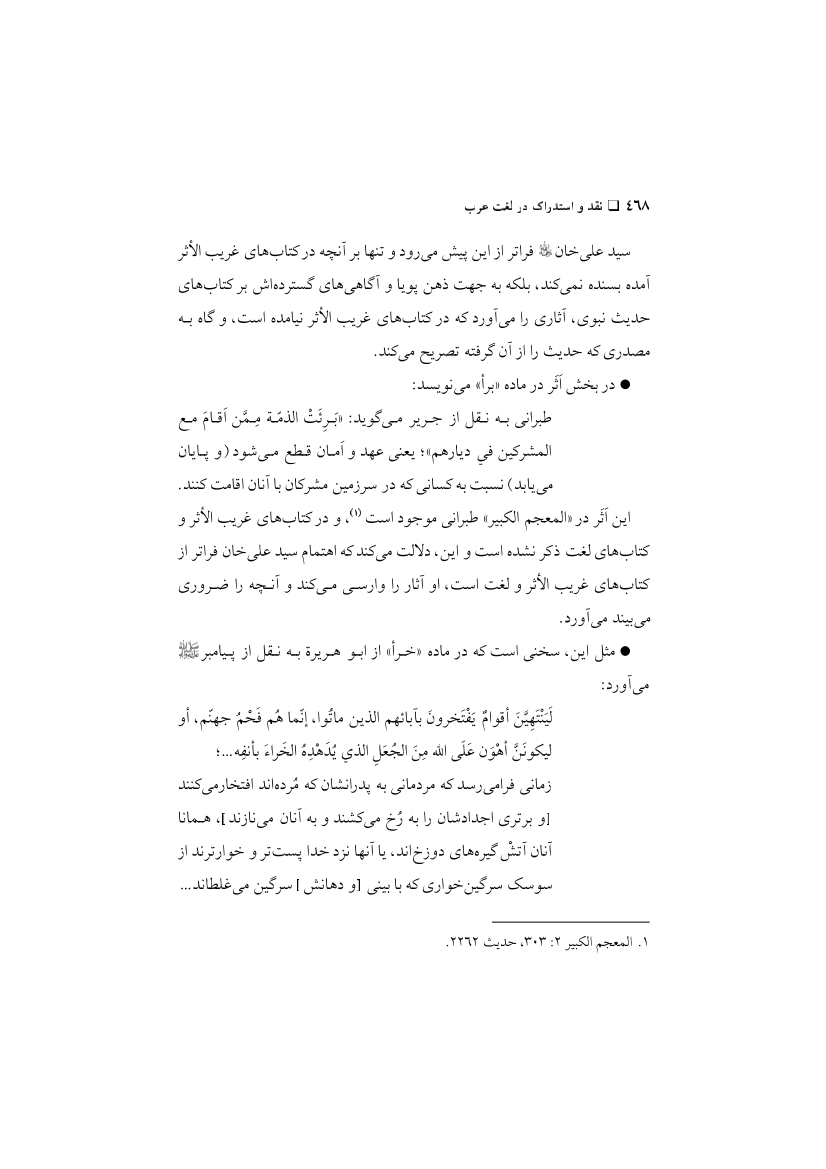 ٤٦٨ ❏ نقد و استدراک در لغت عرب
سید علی‌خان فراتر از این پیش می‌رود و تنها بر آنچه در کتاب‌های غریب الأثر
آمده بسنده نمی‌کند، بلکه به جهت ذهن پویا و آگاهی‌های گسترده‌اش بر کتاب‌های
حدیث نبوی، آثاری را می‌آورد که در کتاب‌های غریب الأثر نیامده است، و گاه بـه
مصدری که حدیث را از آن گرفته تصریح می‌کند.
● در بخش اَثَر در ماده «برأ» می‌نویسد:
طبرانی بـه نـقل از جـریر مـی‌گوید: «بَـرِئَتْ الذمّـة مِـمَّن اَقـامَ مـع
المشرکین في دیارهم»؛ یعنی عهد و اَمـان قـطع مـی‌شود (و پـایان
می‌یابد) نسبت به کسانی که در سرزمین مشرکان با آنان اقامت کنند.
این اَثَر در «المعجم الکبیر» طبرانی موجود است (۱)، و در کتاب‌های غریب الأثر و
کتاب‌های لغت ذکر نشده است و این، دلالت می‌کند که اهتمام سید علی‌خان فراتر از
کتاب‌های غریب الأثر و لغت است، او آثار را وارسـی مـی‌کند و آنـچه را ضـروری
می‌بیند می‌آورد.
● مثل این، سخنی است که در ماده «خـرأ» از ابـو هـریرة بـه نـقل از پـیامبر ﷺ
می‌آورد:
لَیَنْتَهِیَّنَ أقوامٌ یَفْتَخرونَ بآبائهم الذین ماتُوا، إنّما هُم فَحْمُ جهنّم، أو
لیکونَنَّ أهْوَن عَلَی الله مِنَ الجُعَلِ الذي یُدَهْدِهُ الخَراءَ بأنفِه...؛
زمانی فرامی‌رسد که مردمانی به پدرانشان که مُرده‌اند افتخارمی‌کنند
[و برتری اجدادشان را به رُخ می‌کشند و به آنان می‌نازند]، هـمانا
آنان آتشْ گیره‌های دوزخ‌اند، یا آنها نزد خدا پست‌تر و خوارترند از
سوسک سرگین‌خواری که با بینی [و دهانش] سرگین می‌غلطاند...
۱. المعجم الکبیر ۲: ۳۰۳، حدیث ۲۲٦۲.